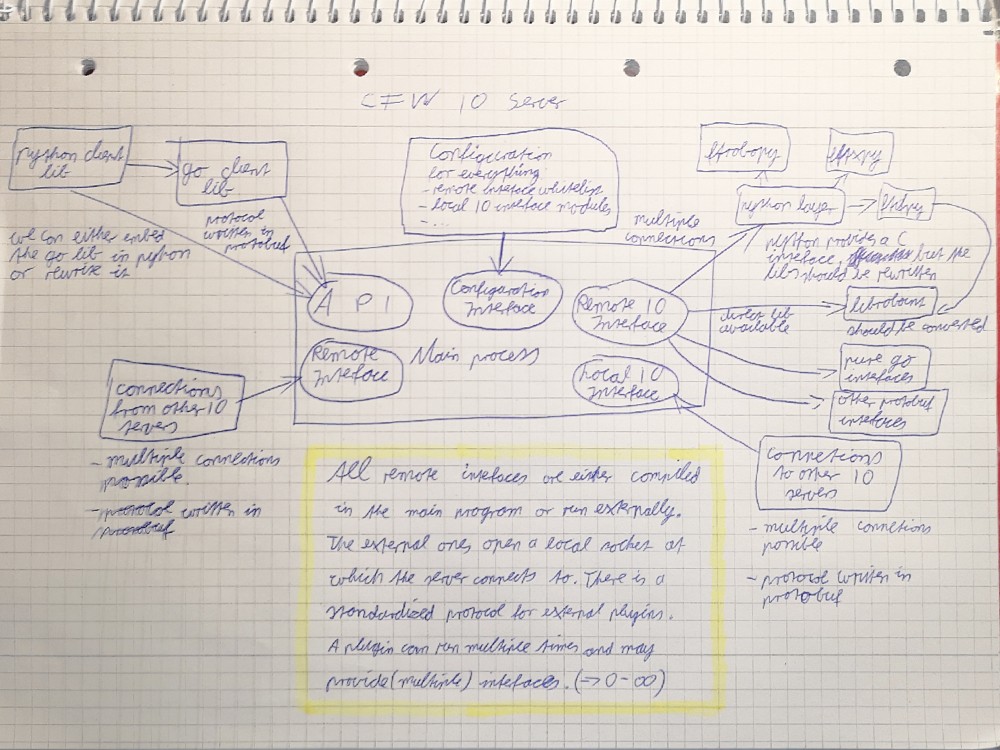 CFW IO Server
python client
lib
go client
lib
protocol
written in
protobuf
we can either embed
the go lib in python
or rewrite it
Configuration
for everything:
- remote interface whitelist
- local IO interface modules
...
multiple
connections
ftrobopy
fttxpy
python layer
python provides a C
interface, but the
libs should be rewritten
API
Configuration
Interface
Remote IO
Interface
direct lib
available
libroboint
should be converted
Remote
Interface
Main process
Local IO
Interface
pure go
interfaces
other protobuf
interfaces
connections
from other IO
servers
- multiple connections
possible.
- protocol written in
protobuf
connetions
to other IO
servers
- multiple connetions
possible
- protocol written in
protobuf
All remote interfaces are either compiled
in the main program or run externally.
The external ones open a local socket at
which the server connects to. There is a
standardized protocol for external plugins.
A plugin can run multiple times and may
provide (multiple) interfaces. (=> 0-∞)